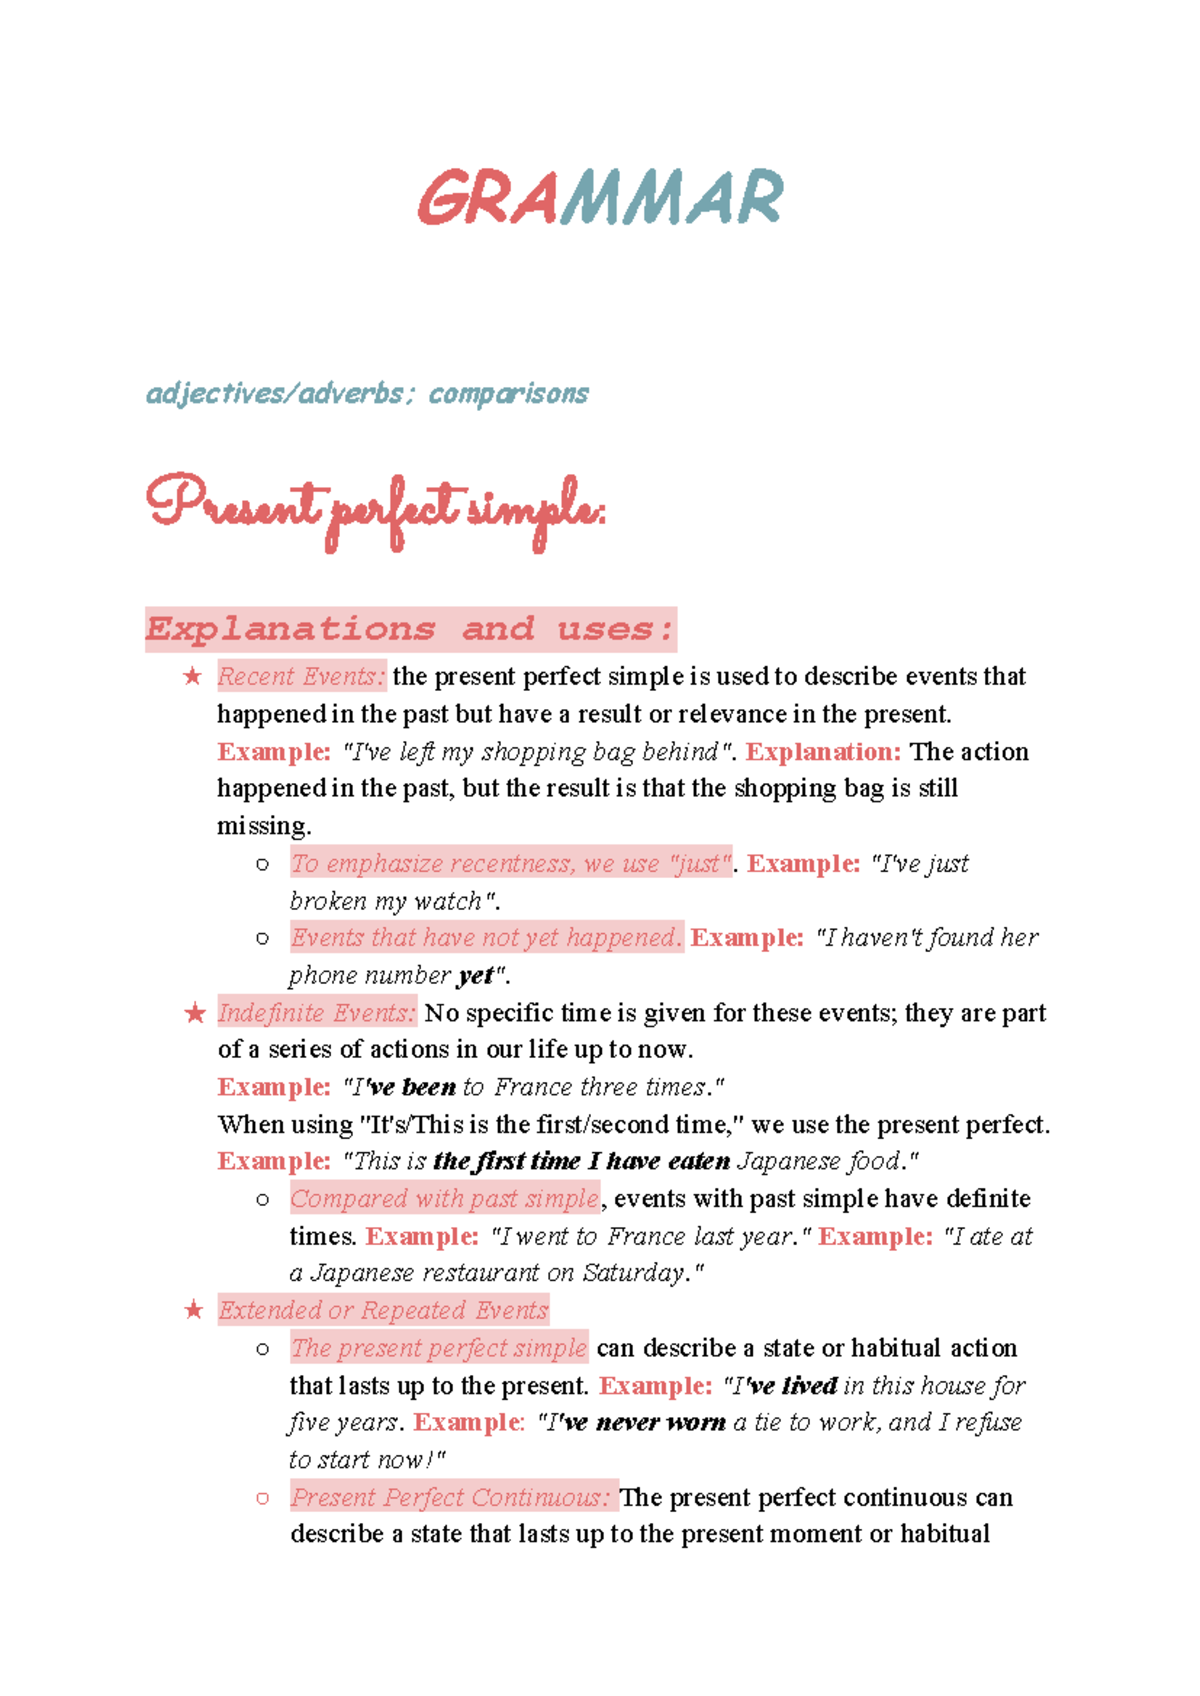 GRAMMAR
adjectives/adverbs; comparisons
Present perfect simple:
Explanations and uses:
★ Recent Events: the present perfect simple is used to describe events that
happened in the past but have a result or relevance in the present.
Example: "I've left my shopping bag behind". Explanation: The action
happened in the past, but the result is that the shopping bag is still
missing.
○ To emphasize recentness, we use "just". Example: "I've just
broken my watch".
○ Events that have not yet happened. Example: "I haven't found her
phone number yet".
★ Indefinite Events: No specific time is given for these events; they are part
of a series of actions in our life up to now.
Example: "I've been to France three times."
When using "It's/This is the first/second time," we use the present perfect.
Example: "This is the first time I have eaten Japanese food."
○ Compared with past simple, events with past simple have definite
times. Example: "I went to France last year." Example: "I ate at
a Japanese restaurant on Saturday."
★ Extended or Repeated Events
○ The present perfect simple can describe a state or habitual action
that lasts up to the present. Example: "I've lived in this house for
five years. Example: "I've never worn a tie to work, and I refuse
to start now!"
○ Present Perfect Continuous: The present perfect continuous can
describe a state that lasts up to the present moment or habitual